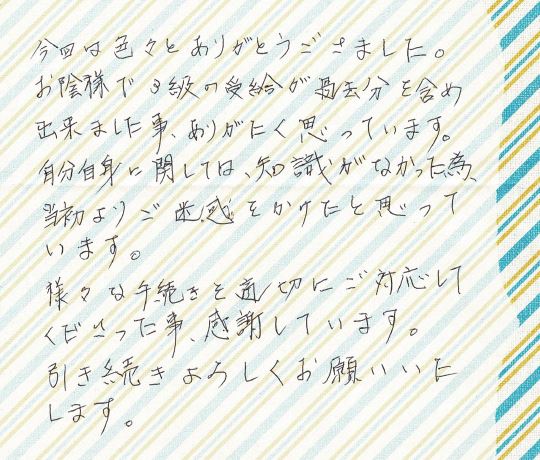 今回は色々とありがとうございました。
お陰様で3級の受給が過去分を含め
出来ました事、ありがたく思っています。
自分自身に関しては、知識がなかった為、
当初よりご迷惑をかけたと思って
います。
様々な手続きを適切にご対応して
くださった事、感謝しています。
引き続きよろしくお願いいた
します。